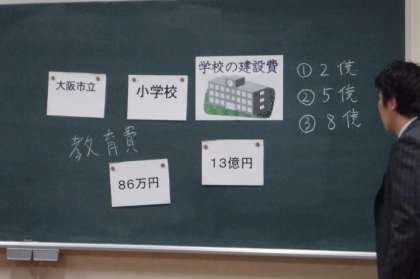 大阪市立
小学校
学校の建設費
①2億
②5億
③8億
教育費
86万円
13億円